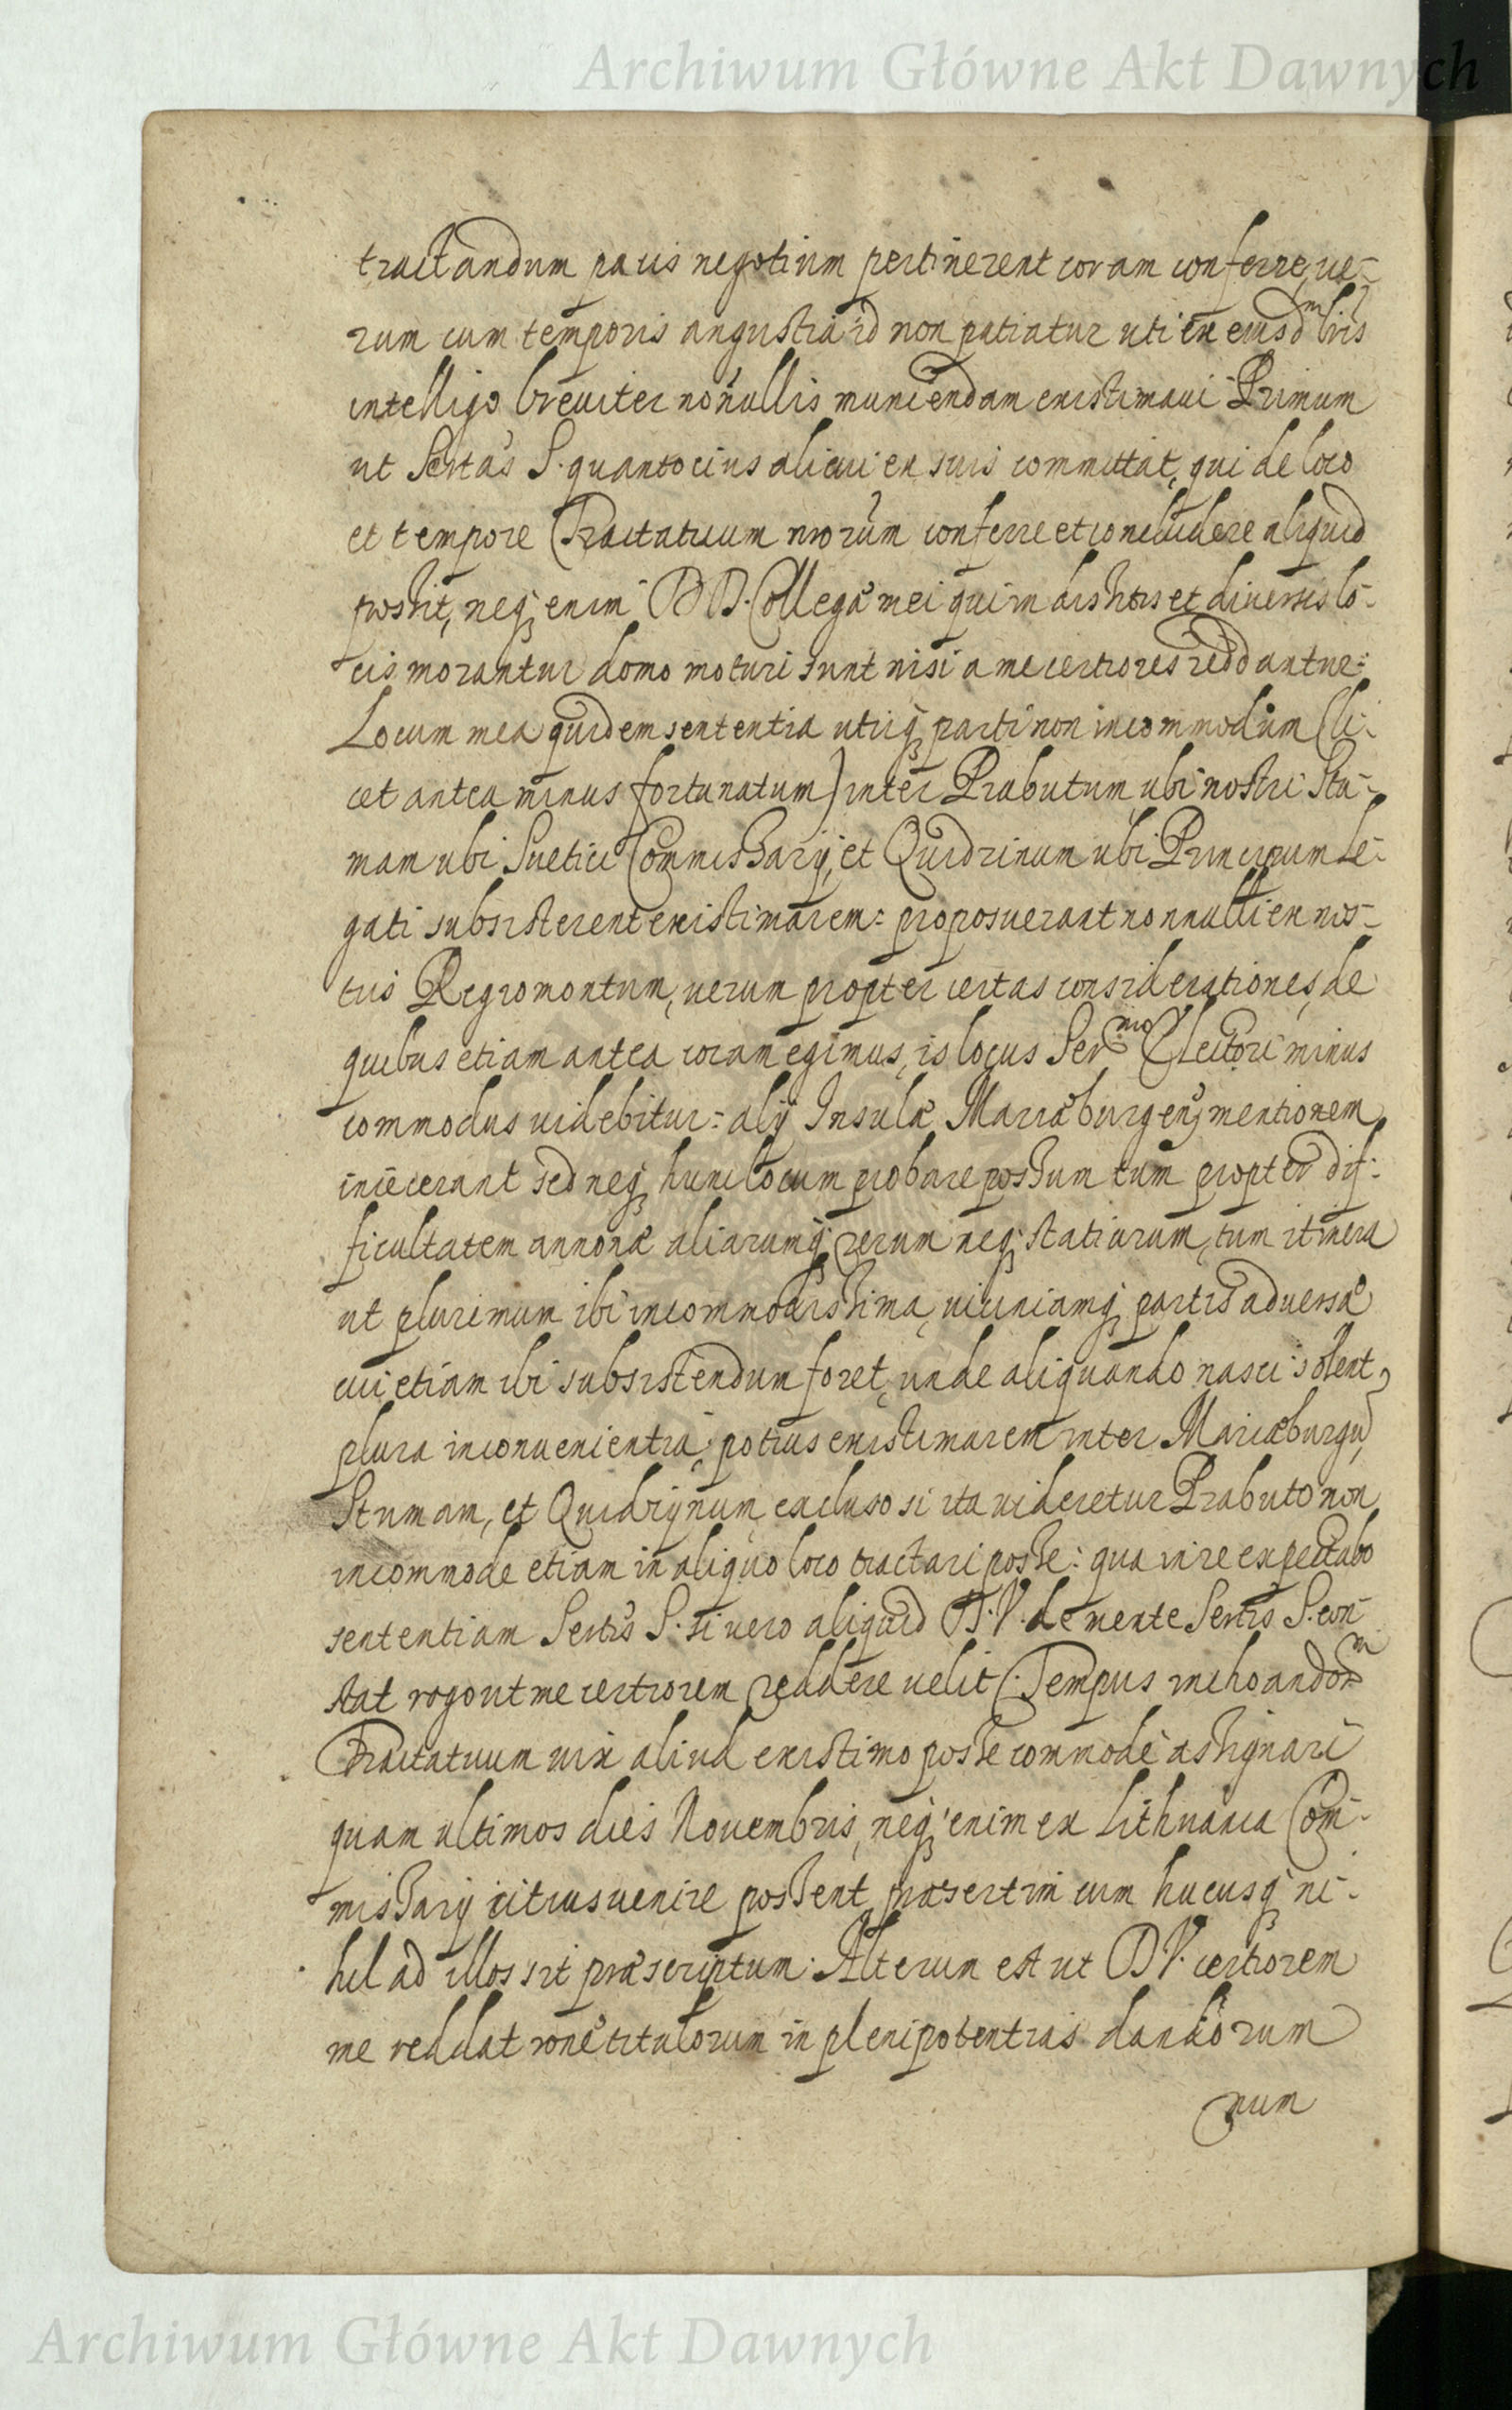 Archiwum Główne Akt Dawnych
tractandum pacis negotium pertinerent coram conferre, ue-
rum cum temporis angustia id non patiatur uti ex eiusdm lris
intelligo breuiter nonullis muniendam existimaui Primum
ut Sertas S. quantocius alicui ex suis committat, qui de loco
et tempore Tractatuum nrorum conferre et concludere aliquid
possit, neq enim DD. Collegæ mei qui in dissitis et diuersis lo-
cis morantur domo moturi sunt nisi a me certiores reddantur:
Locum mea quidem sententia utriq parti non incommodum (li-
cet antea minus fortunatum) inter Prabutum ubi nostri Stu-
mam ubi Suetici Commissarij, et Quidrinum ubi Principum Le-
gati subsisterent existimarem: proposuerant nonnulli ex nos-
tris Regiomontum, uerum propter certas considerationes, de
quibus etiam antea coram egimus, is locus Sermo Electori minus
commodus uidebitur: alij Insulæ Mariæburgens mentionem
iniecerant sed neq hunc locum probare possum tum propter dif-
ficultatem annonæ aliarumq rerum neq statiuarum, tum itinera
ut plurimum ibi incommodissima, uiciniamq partis aduersæ
cui etiam ibi subsistendum foret, unde aliquando nasci solent
plura inconuenientia; potius existimarem inter Mariæburgu
Stumam, et Quidrijnum, excluso si ita uideretur Prabuto non
incommode etiam in aliquo loco tractari posse: qua in re expectabo
sententiam Sertis S. si uero aliquid D.V. de mente Sertis S. con-
stat rogo ut me certiorem reddere uelit. Tempus inchoandorm
Tractatuum uix aliud existimo posse commodè assignari
quam ultimos dies Nouembris, neq enim ex Lithuania Com-
missarij citius uenire possent, præsertim cum hucusq ni-
hil ad illos sit præscriptum: Alterum est ut D V. certiorem
me reddat rone titulorum in plenipotentias dandorum
num
Archiwum Główne Akt Dawnych